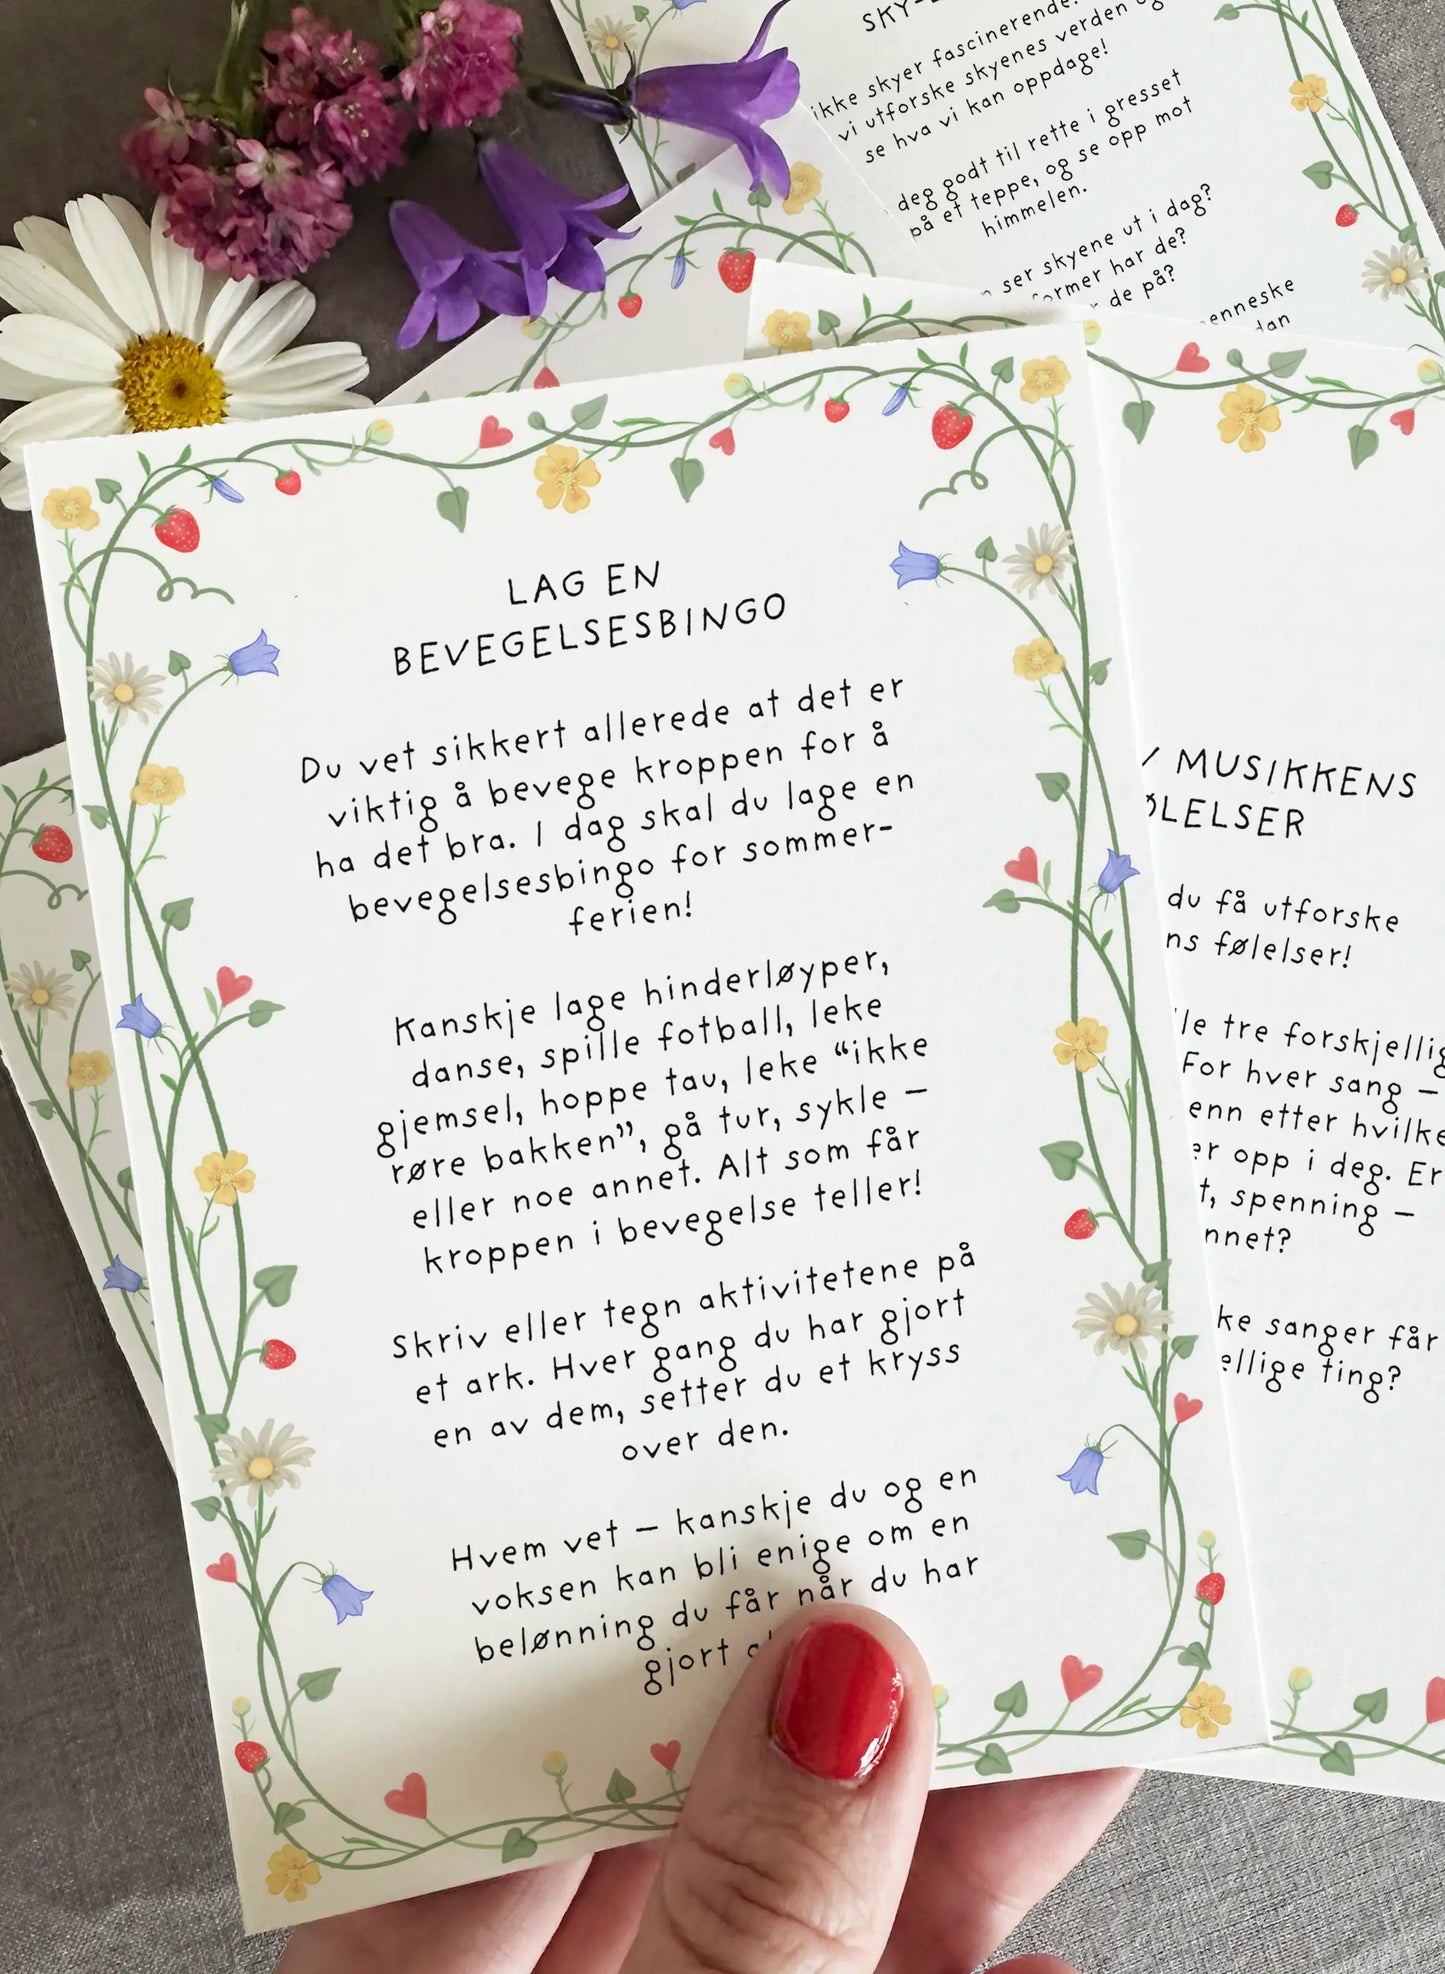 SKY-
ikke skyer fascinerende.
vi utforske skyenes verden og
se hva vi kan oppdage!
deg godt til rette i gresset
på et teppe, og se opp mot
himmelen.
ser skyene ut i dag?
former har de?
de på?
enneske
LAG EN
BEVEGELSESBINGO
Du vet sikkert allerede at det er
viktig å bevege kroppen for å
ha det bra. I dag skal du lage en
bevegelsesbingo for sommer-
ferien!
Kanskje lage hinderløyper,
danse, spille fotball, leke
gjemsel, hoppe tau, leke “ikke
røre bakken”, gå tur, sykle –
eller noe annet. Alt som får
kroppen i bevegelse teller!
Skriv eller tegn aktivitetene på
et ark. Hver gang du har gjort
en av dem, setter du et kryss
over den.
Hvem vet – kanskje du og en
voksen kan bli enige om en
belønning du får når du har
gjort
MUSIKKENS
ØLELSER
du få utforske
ns følelser!
tre forskjellig
For hver sang –
enn etter hvilke
er opp i deg. Er
t, spenning –
nnet?
ke sanger får
ellige ting?